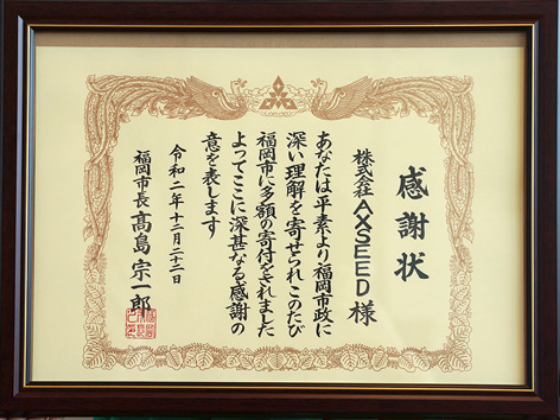 感謝状
株式会社AXSEED様
あなたは平素より福岡市政に
深い理解を寄せられこのたび
福岡市に多額の寄付をされました
よってここに深甚なる感謝の
意を表します
令和二年十二月二十二日
福岡市長 高島宗一郎